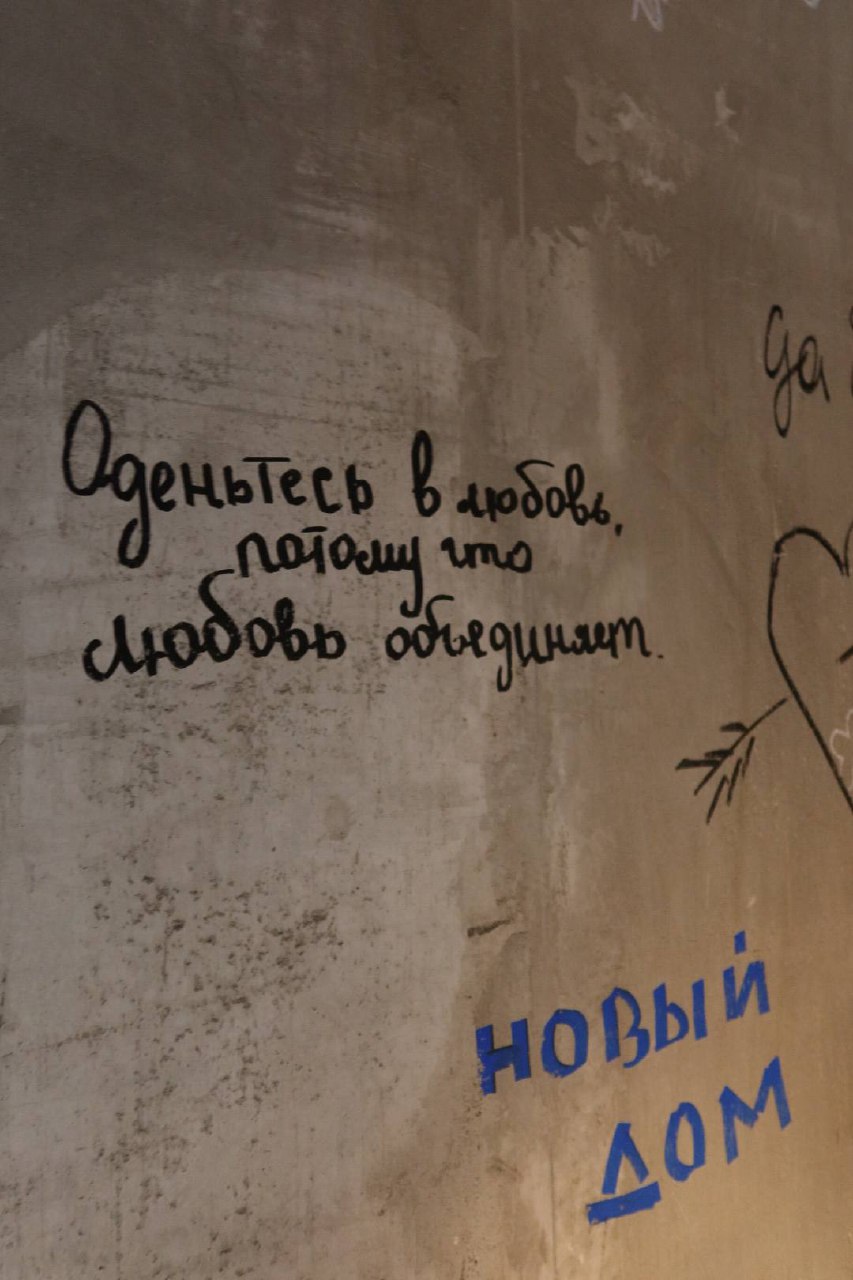 Оденьтесь в любовь,
потому что
любовь объединяет.
да
новый
дом